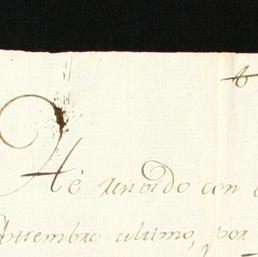 Hé recivido con
ptiembre ultimo, por